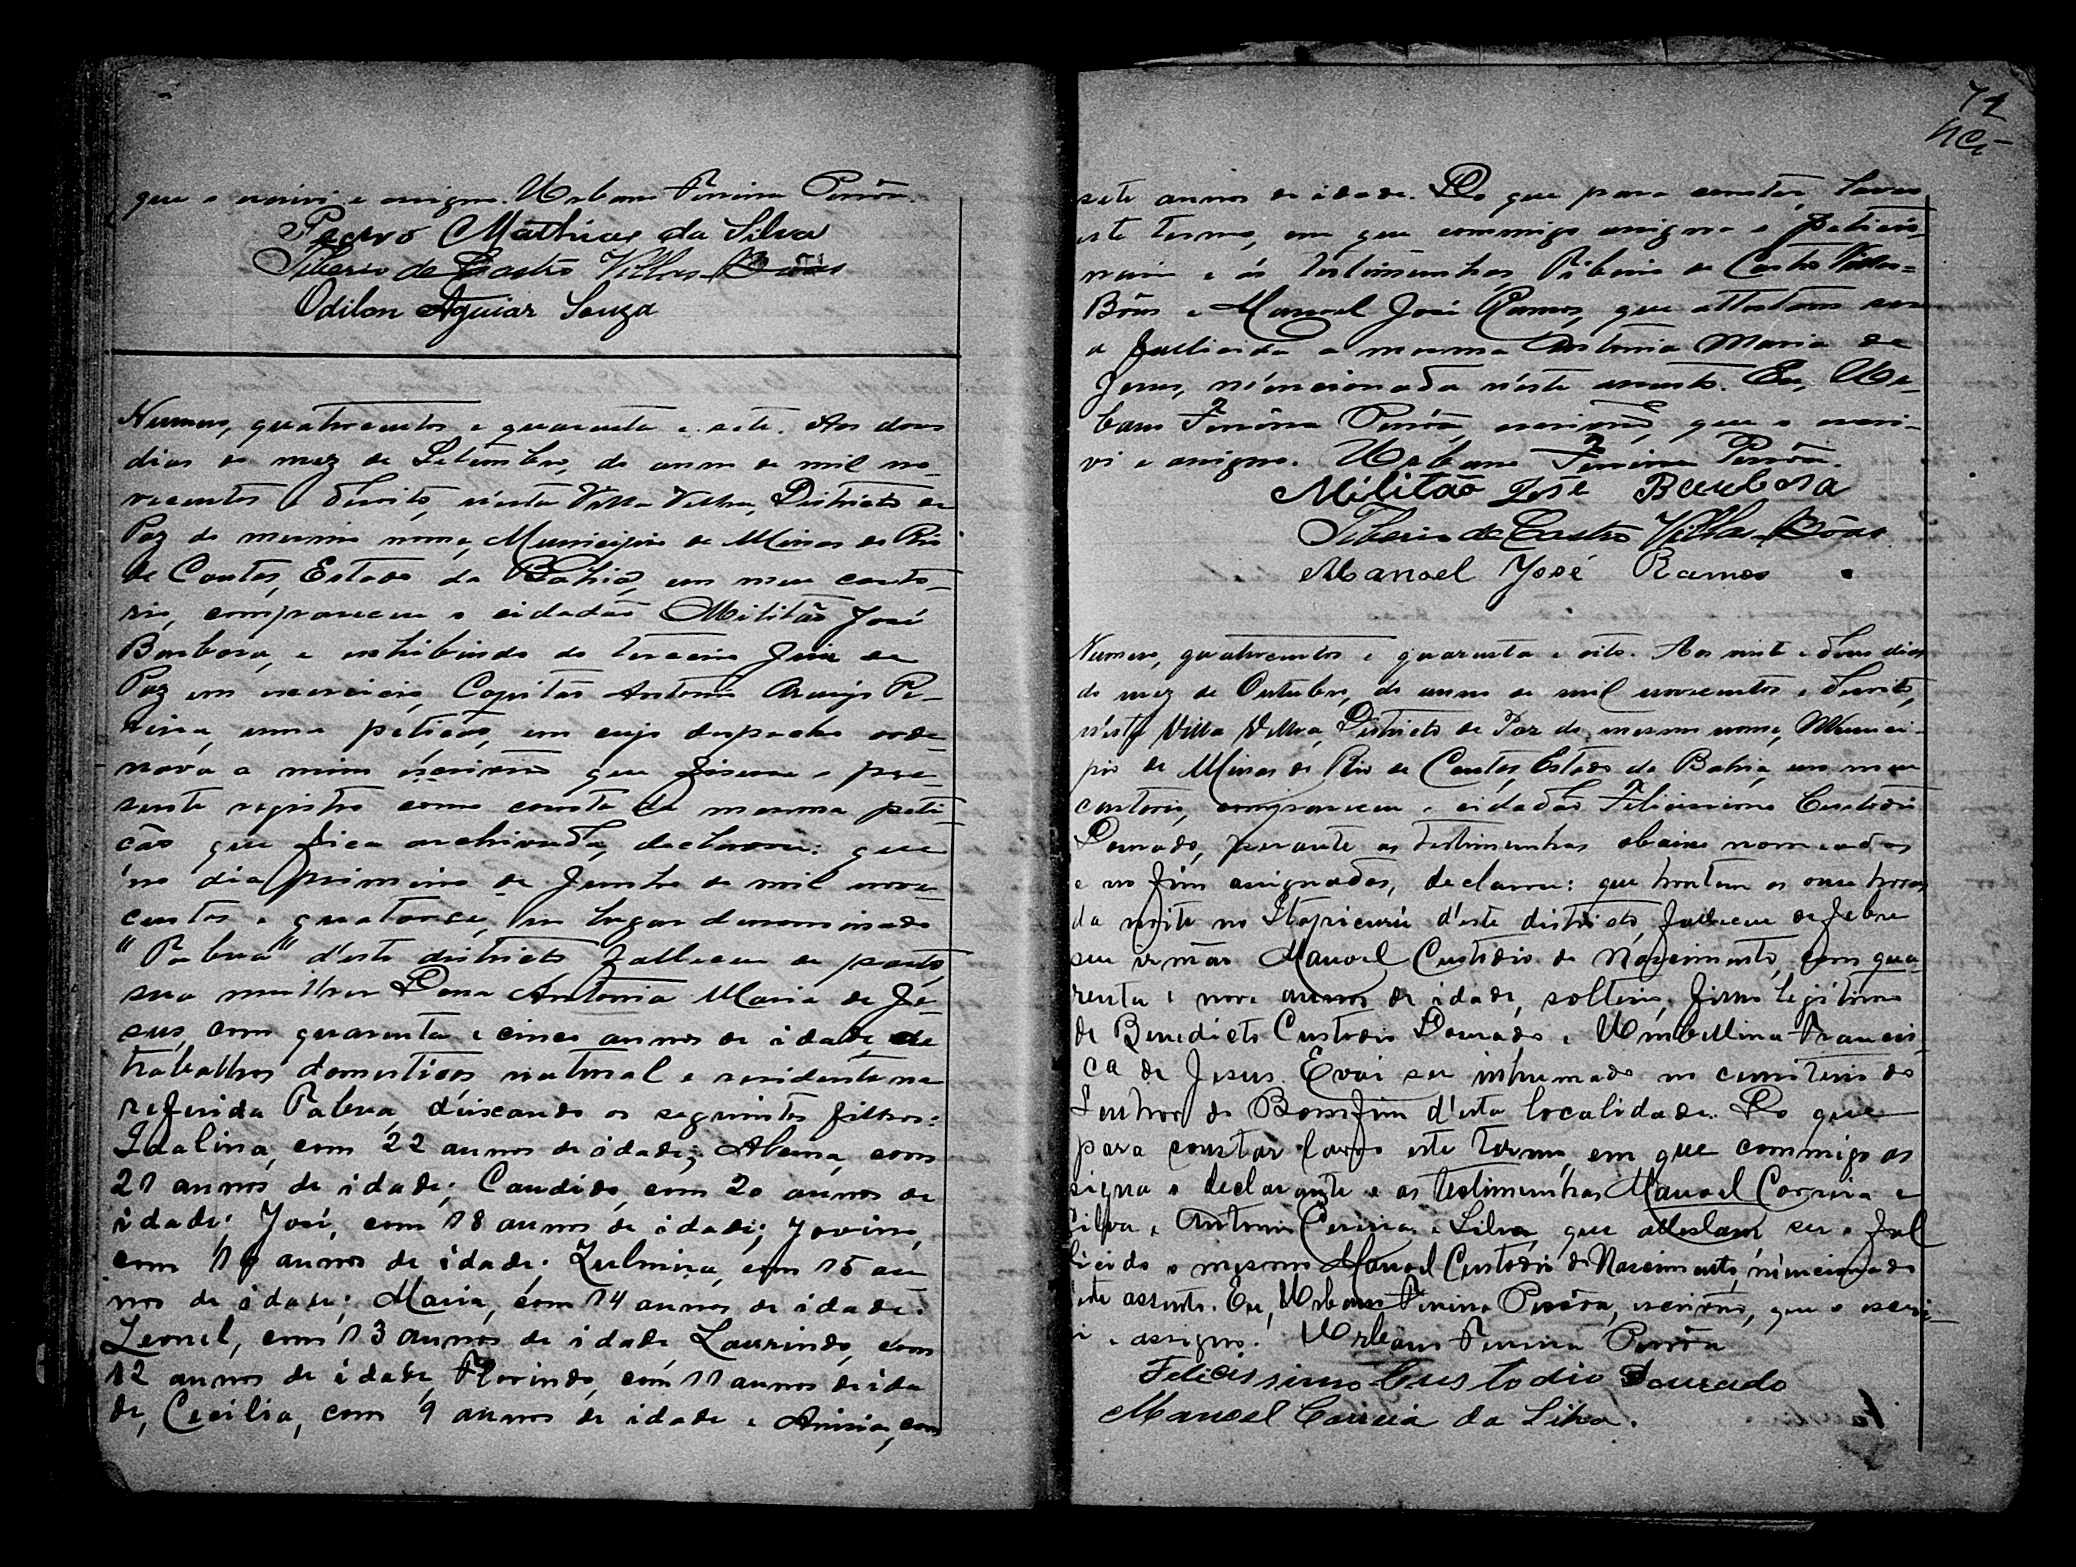 que o escrivi e assigno. Urbano Ferreira Pessôa.
Pedro Mathias da Silva
Tiberio de Castro Villas-Bôas
Odilon Aguiar Souza
Numero, quatrocentos e quarenta e sete. Aos dous
dias do mez de Setembro, do anno de mil no-
vecentos e desoito, n'esta Villa Velha, Districto de
Paz do mesmo nome, Municipio de Minas do Rio
de Contas, Estado da Bahia, em meu carto-
rio, compareceu o cidadão Militão José
Barbosa, e exhibindo do terceiro Juiz de
Paz em exercicio, Capitão Antonio Araujo Pe-
reira, uma petição, em cujo despacho orde-
nava a mim escrivão que fisesse o pre-
sente registro como consta da mesma peti-
ção que fica archivada, declarou: que
no dia primeiro de Junho de mil nove-
centos e quatorze, no lugar denominado
"Pabua" d'este districto falleceu de parto,
sua mulher Dona Antonia Maria de Je-
sus, com quarenta e cinco annos de idade de
trabalhos domesticos natural e residente na
referida Pabua, deixando os seguintes filhos:
Idalina, com 22 annos de idade; com
21 annos de idade; Candido, com 20 annos de
idade; José, com 18 annos de idade; Jovino,
com 16 annos de idade; Zulmira, com 15 an
nos de idade; Maria, com 14 annos de idade;
Leonel, com 13 annos de idade Laurindo, com
12 annos de idade Florindo, com 11 annos de ida
de, Cecilia, com 9 annos de idade e Anisia, com
71
sete annos de idade. Do que para constar, lavro
este termo, em que commigo assigna o peticio-
nario e ás testimunhas, Tiberio de Castro Villas=
Bôas e Manoel José Ramos, que attestam ser
a fallecida a mesma Antonia Maria de
Jesus, mencionada n'este assento. Eu, Ur-
bano Ferreira Pessôa, escrivão, que o escri-
vi e assigno. Urbano Ferreira Pessôa.
Militão José Barbosa
Tiberio de Castro Villas-Bôas
Manoel José Ramos
Numero, quatrocentos e quarenta e oito. Aos vinte e dous dias
do mez de Outubro, do anno de mil novecentos e desoito,
n'esta Villa Velha, Districto de Paz do mesmo nome, Munici-
pio de Minas do Rio de Contas, Estado da Bahia, em meu
cartorio, compareceu o cidadão Felicissimo Custodio
Dourado, perante as testimunhas abaixo nomeadas
e no fim assignadas, declarou: que hontem as onze horas
da noite no Itapicurú d'este districto, falleceu de febre
seu irmão Manoel Custodio do Nascimento, com qua-
renta e nove annos de idade, solteiro, filho legitimo
de Benedicto Custodio Dourado e Umbellina Francis-
ca de Jesus. E vai ser inhumado no cemiterio do
Senhor do Bomfim d'esta localidade. Do que
para constar lavro este termo, em que commigo as
signa o declarante e as testimunhas Manoel Correia e
Silva e Antonio Correia e Silva, que attestam ser o fal
licido o mesmo Manoel Custodio do Nascimento, mencionado
n'este assento. Eu, Urbano Ferreira Pessôa, escrivão, que o escri-
vi e assigno. Urbano Ferreira Pessôa
Felicissimo Custodio Dourado
Manoel Correia da Silva.